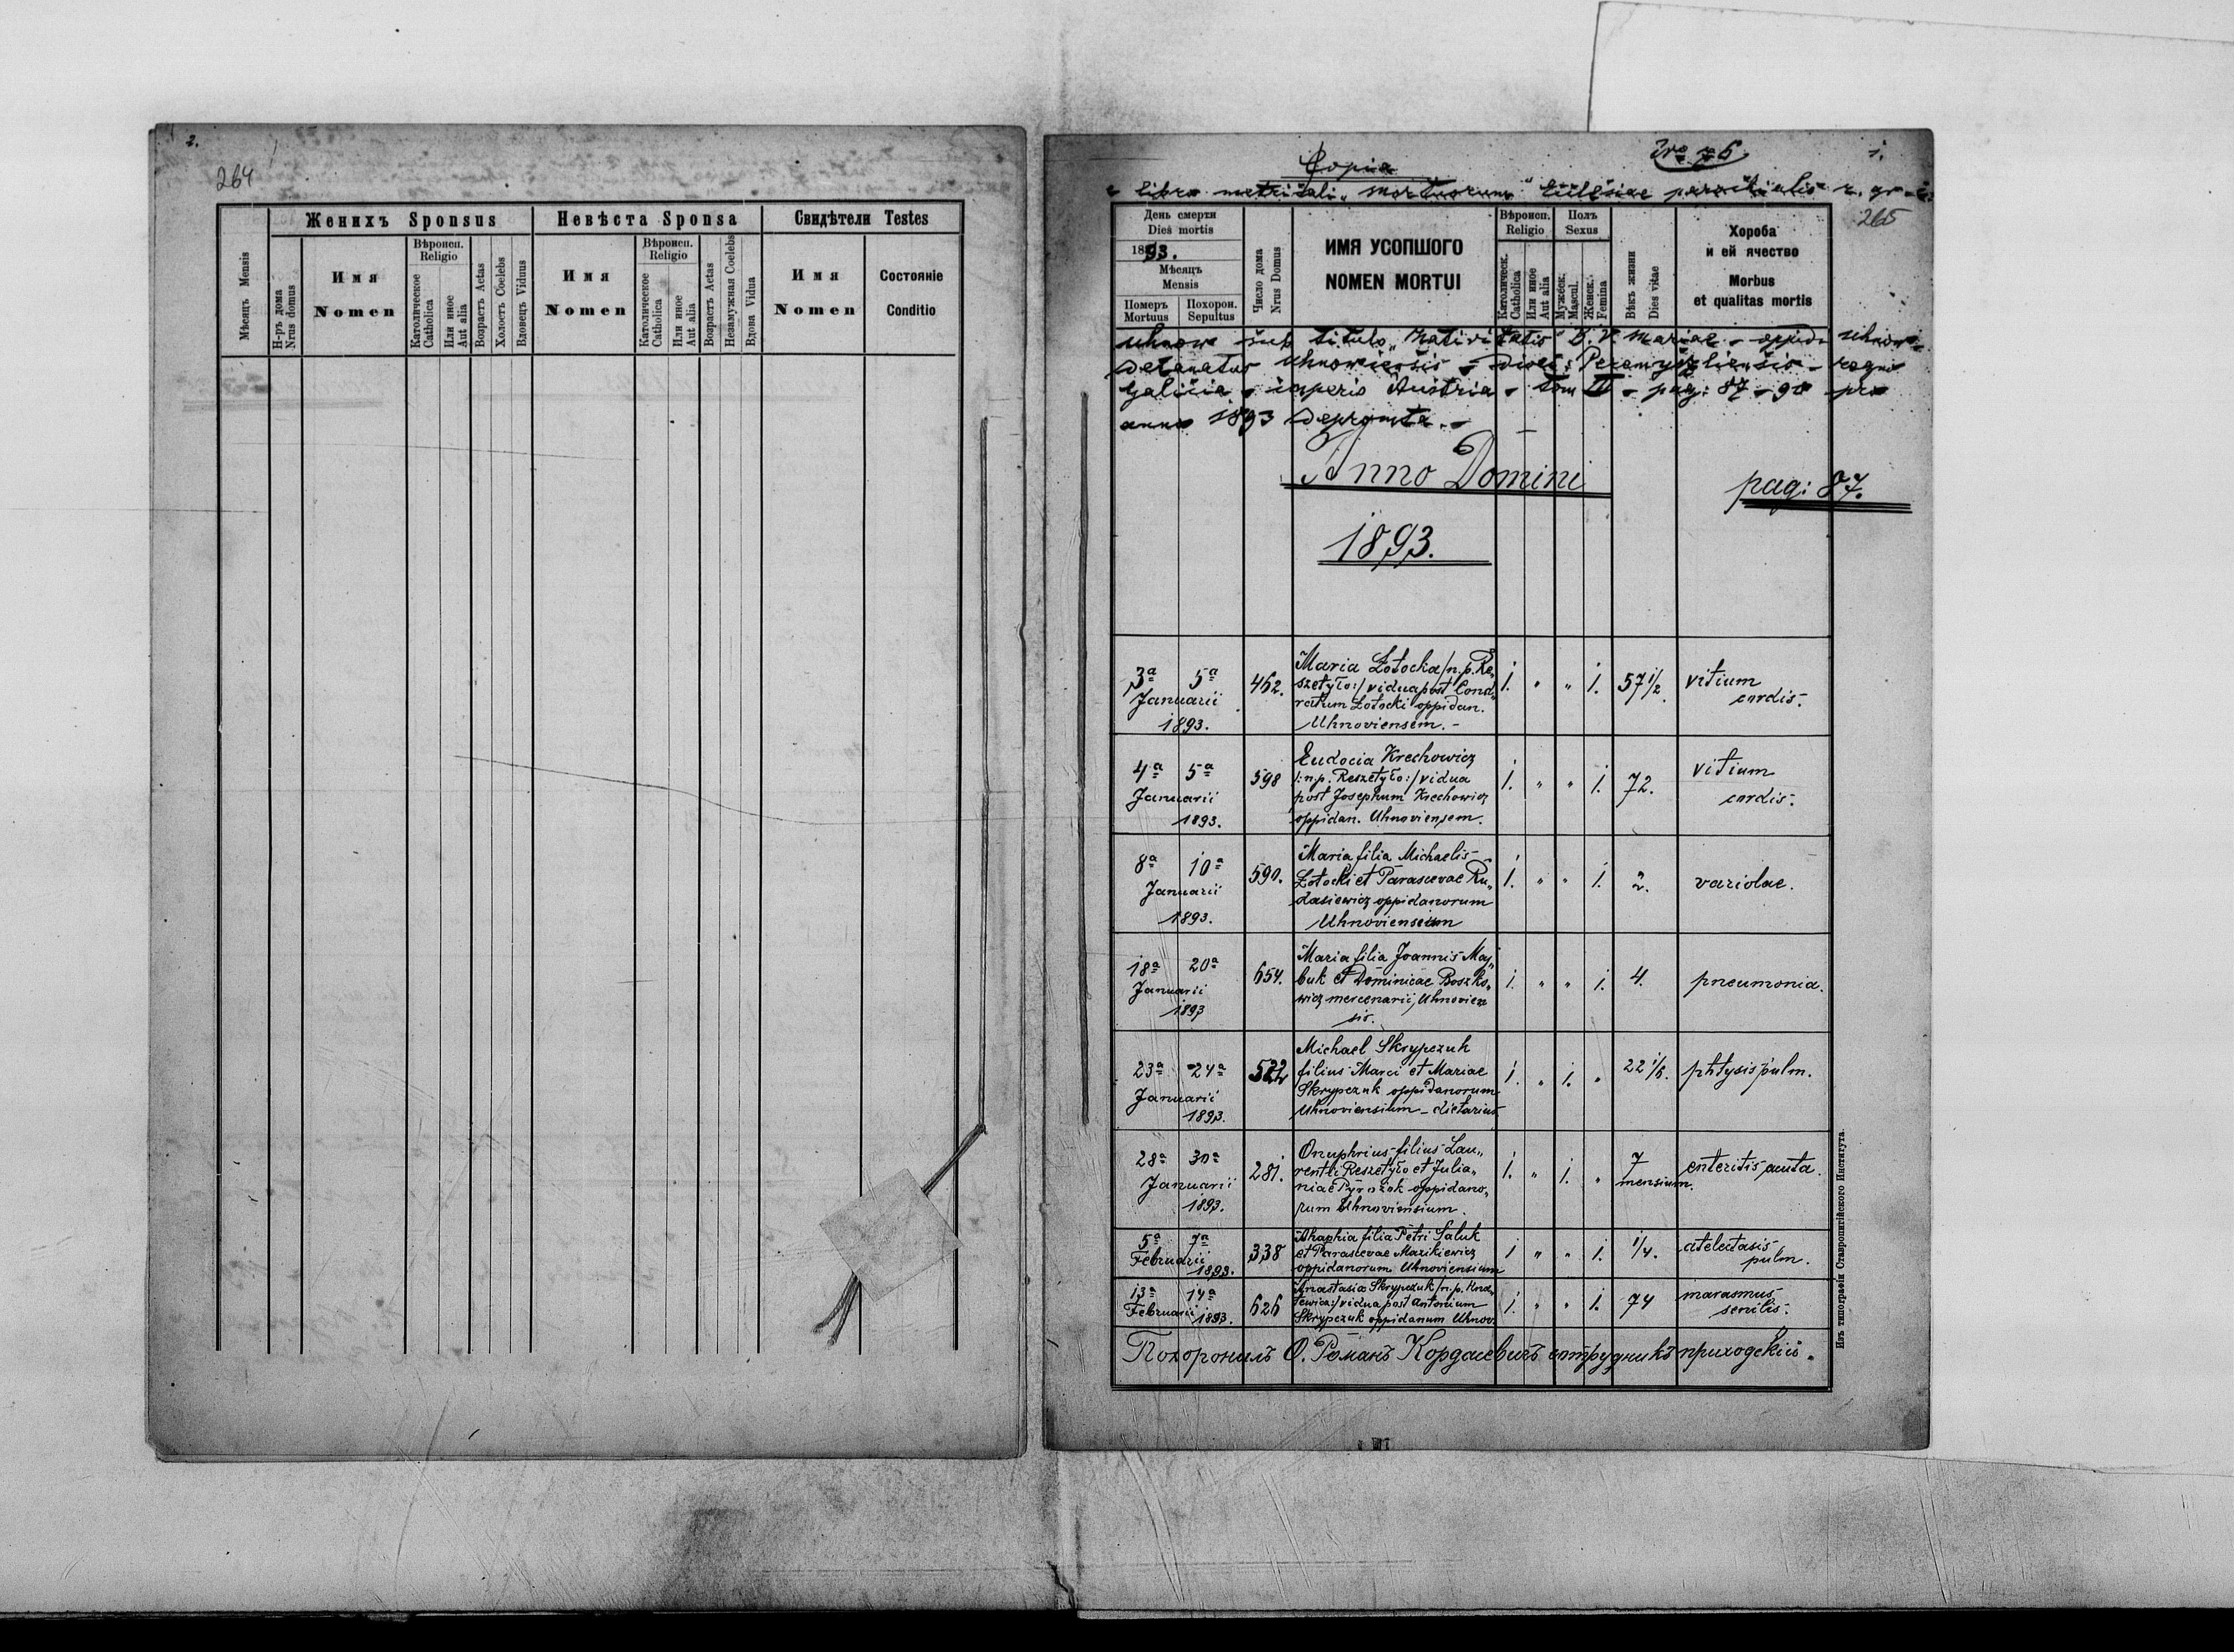 2.
264
Женихъ Sponsus
Невѣста Sponsa
Свидѣтели Testes
Мѣсяцъ Mensis
Н-ръ дома
Nrus domus
Имя
Nomen
Вѣроисп.
Religio
Католическое
Catholica
Или иное
Aut alia
Возрастъ Aetas
Холостъ Coelebs
Вдовецъ Viduus
Имя
Nomen
Вѣроисп.
Religio
Католическое
Catholica
Или иное
Aut alia
Возрастъ Aetas
Незамужная Coelebs
Вдова Vidua
Имя
Nomen
Состояніе
Conditio
Copia
1.
libro metricali „Mortuorum“ Ecclesiae parochialis r. gr. c.
265
День смерти
Dies mortis
1893.
Мѣсяцъ
Mensis
Померъ
Mortuus
Похорон.
Sepultus
Число дома
Nrus Domus
ИМЯ УСОПШОГО
NOMEN MORTUI
Вѣроисп.
Religio
Католическ.
Catholica
Или иное
Aut alia
Полъ
Sexus
Мужеск.
Mascul.
Женск.
Femina
Вѣкъ жизни
Dies vitae
Хороба
и ей ячество
Morbus
et qualitas mortis
Uhnow sub titulo „Nativitatis“ B. V. Mariae - oppidi
Decanatus Uhnoviensis - Dioec: Peremysliensis - regni
Galicia - imperio Austria - tom II - pag: 87 - 98 pro
anno 1893 deprompta. -
Anno Domini
pag: 87.
1893.
3a 5a Januarii 1893. 462.
Maria Łotocka /n. p. Re„
szetyło:/ vidua post Cond„
ratum Łotocki oppidan.
Uhnoviensem. -
1. „ „ 1. 57 1/2. vitium cordis.
4a 5a Januarii 1893. 598
Eudocia Krechowicz
/:n. p. Reszetyło:/ vidua
post Josephum Krechowicz
oppidan. Uhnoviensem.
1. „ „ 1. 72. vitium cordis.
8a 10a Januarii 1893. 590.
Maria filia Michaelis
Łotocki et Parascevae Ru„
dasiewicz oppidanorum
Uhnoviensium
1. „ „ 1. 2. variolae.
18a 20a Januarii 1893 654.
Maria filia Joannis Maj„
buk et Dominicae Boszko„
wicz mercenarii, Uhnovien
sis.
1. „ „ 1. 4. pneumonia.
23a 24a Januarii 1893. 522
Michael Skrypczuk
filius Marci et Mariae
Skrypczuk oppidanorum
Uhnoviensium - dietarius
1. „ 1. „ 22 1/6. phtysis pulm.
28a 30a Januarii 1893. 281.
Onuphrius filius Lau„
rentii Reszetyło et Julia„
niae Pyrożok oppidano„
rum Uhnoviensium.
1. „ 1. „ 7 mensium. enteritis acuta.
5a 7a Februarii 1893. 338
Ahaphia filia Petri Saluk
et Parascevae Mazikiewicz
oppidanorum Uhnoviensium
1 „ „ 1. 1/4. atelectasis pulm.
13a 14a Februarii 1893. 626
Anastasia Skrypczuk /n. p.
vidua post Antonium
Skrypczuk oppidanum Uhnov.
1. „ „ 1. 74 marasmus senilis.
Похоронилъ О. Романъ Кордасевичъ сотрудникъ приходскій.
Изъ типографіи Ставропигійского Института.